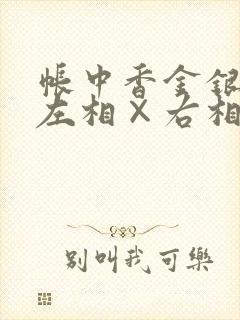 帳中香金銀
左相×右相
别叫我可樂